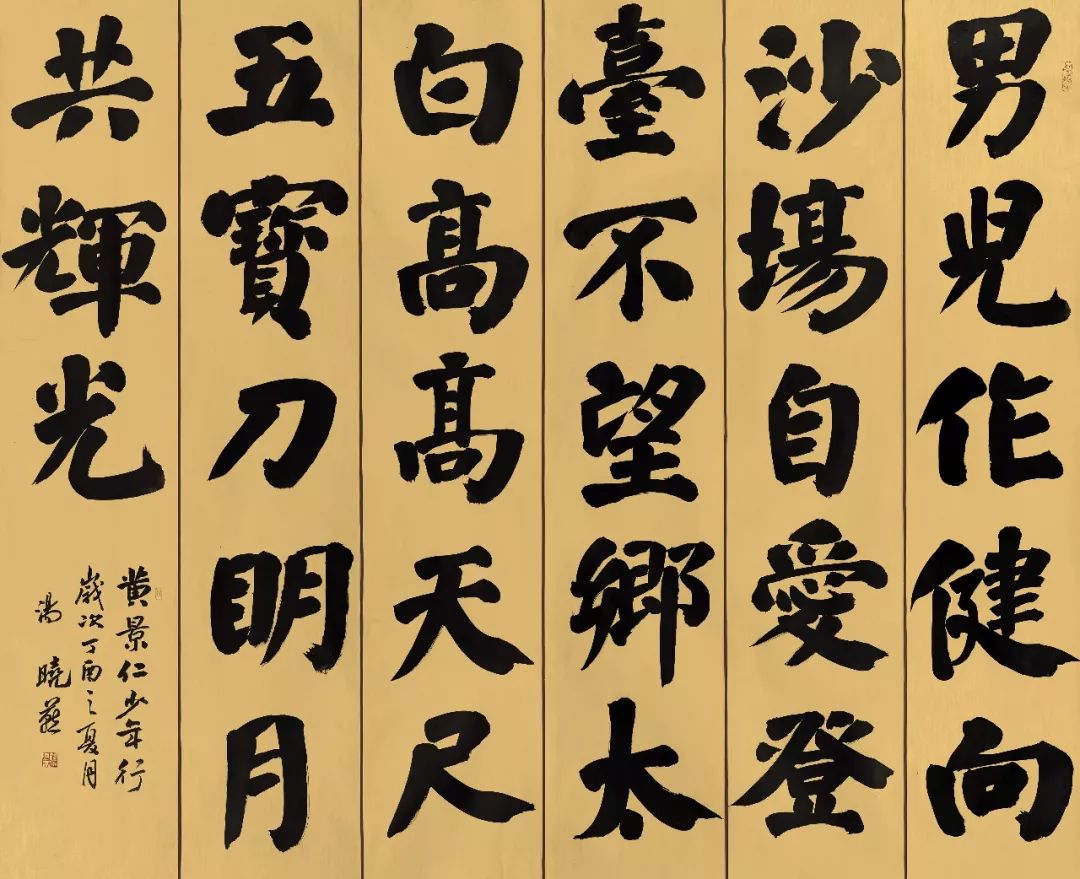 男児作健向
沙場自愛登
臺不望鄉太
白高高天尺
五寶刀明月
共輝光
黄景仁少年行
歲次丁酉之夏月
湯曉